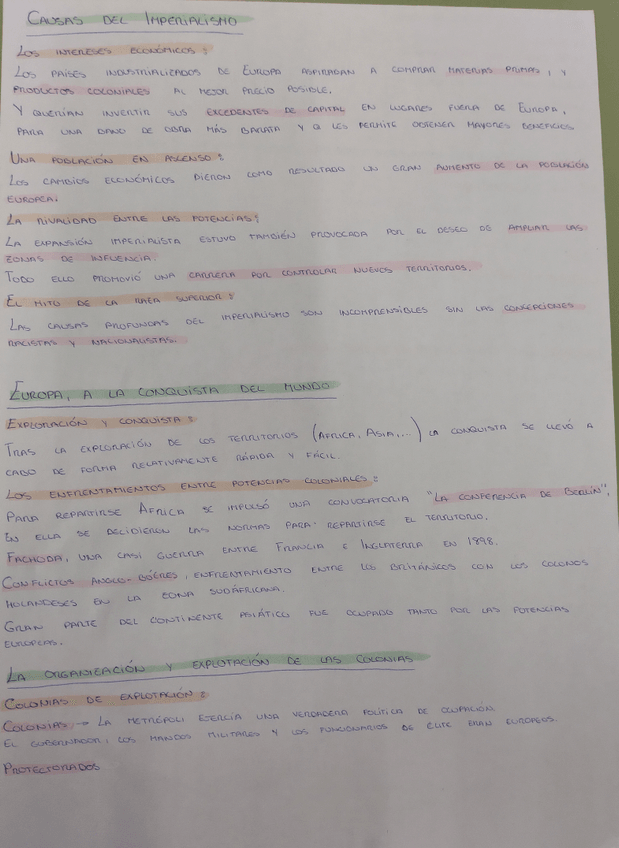 CAUSAS DEL IMPERIALISMO
LOS INTERESES ECONÓMICOS:
LOS PAISES INDUSTRIALIZADOS DE EUROPA ASPIRABAN A COMPRAR MATERIAS PRIMAS, Y
PRODUCTOS COLONIALES AL MEJOR PRECIO POSIBLE.
Y QUERÍAN INVERTIR SUS EXCEDENTES DE CAPITAL EN LUGARES FUERA DE EUROPA,
PARA UNA MANO DE OBRA MÁS BARATA Y Q LES PERMITE OBTENER MAYORES BENEFICIOS
UNA POBLACIÓN EN ASCENSO:
LOS CAMBIOS ECONÓMICOS DIERON COMO RESULTADO UN GRAN AUMENTO DE LA POBLACIÓN
EUROPEA.
LA RIVALIDAD ENTRE LAS POTENCIAS:
LA EXPANSIÓN IMPERIALISTA ESTUVO TAMBIÉN PROVOCADA POR EL DESEO DE AMPLIAR LAS
ZONAS DE INFLUENCIA.
TODO ELLO PROMOVIÓ UNA CARRERA POR CONTROLAR NUEVOS TERRITORIOS.
EL MITO DE LA RAZA SUPERIOR:
LAS CAUSAS PROFUNDAS DEL IMPERIALISMO SON INCOMPRENSIBLES SIN LAS CONCEPCIONES
RACISTAS Y NACIONALISTAS.
EUROPA, A LA CONQUISTA DEL MUNDO
EXPLORACIÓN Y CONQUISTA:
TRAS LA EXPLORACIÓN DE LOS TERRITORIOS (AFRICA, ASIA,...) LA CONQUISTA SE LLEVÓ A
CABO DE FORMA RELATIVAMENTE RÁPIDA Y FÁCIL.
LOS ENFRENTAMIENTOS ENTRE POTENCIAS COLONIALES:
PARA REPARTIRSE ÁFRICA SE IMPULSÓ UNA CONVOCATORIA "LA CONFERENCIA DE BERLÍN",
EN ELLA SE DECIDIERON LAS NORMAS PARA REPARTIRSE EL TERRITORIO.
FACHODA, UNA CASI GUERRA ENTRE FRANCIA E INGLATERRA EN 1898.
CONFLICTOS ANGLO-BÓERES, ENFRENTAMIENTO ENTRE LOS BRITÁNICOS CON LOS COLONOS
HOLANDESES EN LA ZONA SUDÁFRICANA.
GRAN PARTE DEL CONTINENTE ASIÁTICO FUE OCUPADO TANTO POR LAS POTENCIAS
EUROPEAS.
LA ORGANIZACIÓN Y EXPLOTACIÓN DE LAS COLONIAS
COLONIAS DE EXPLOTACIÓN:
COLONIAS → LA METRÓPOLI EJERCIA UNA VERDADERA POLÍTICA DE OCUPACIÓN.
EL GOBERNADOR, LOS MANDOS MILITARES Y LOS FUNCIONARIOS DE ELITE ERAN EUROPEOS.
PROTECTORADOS